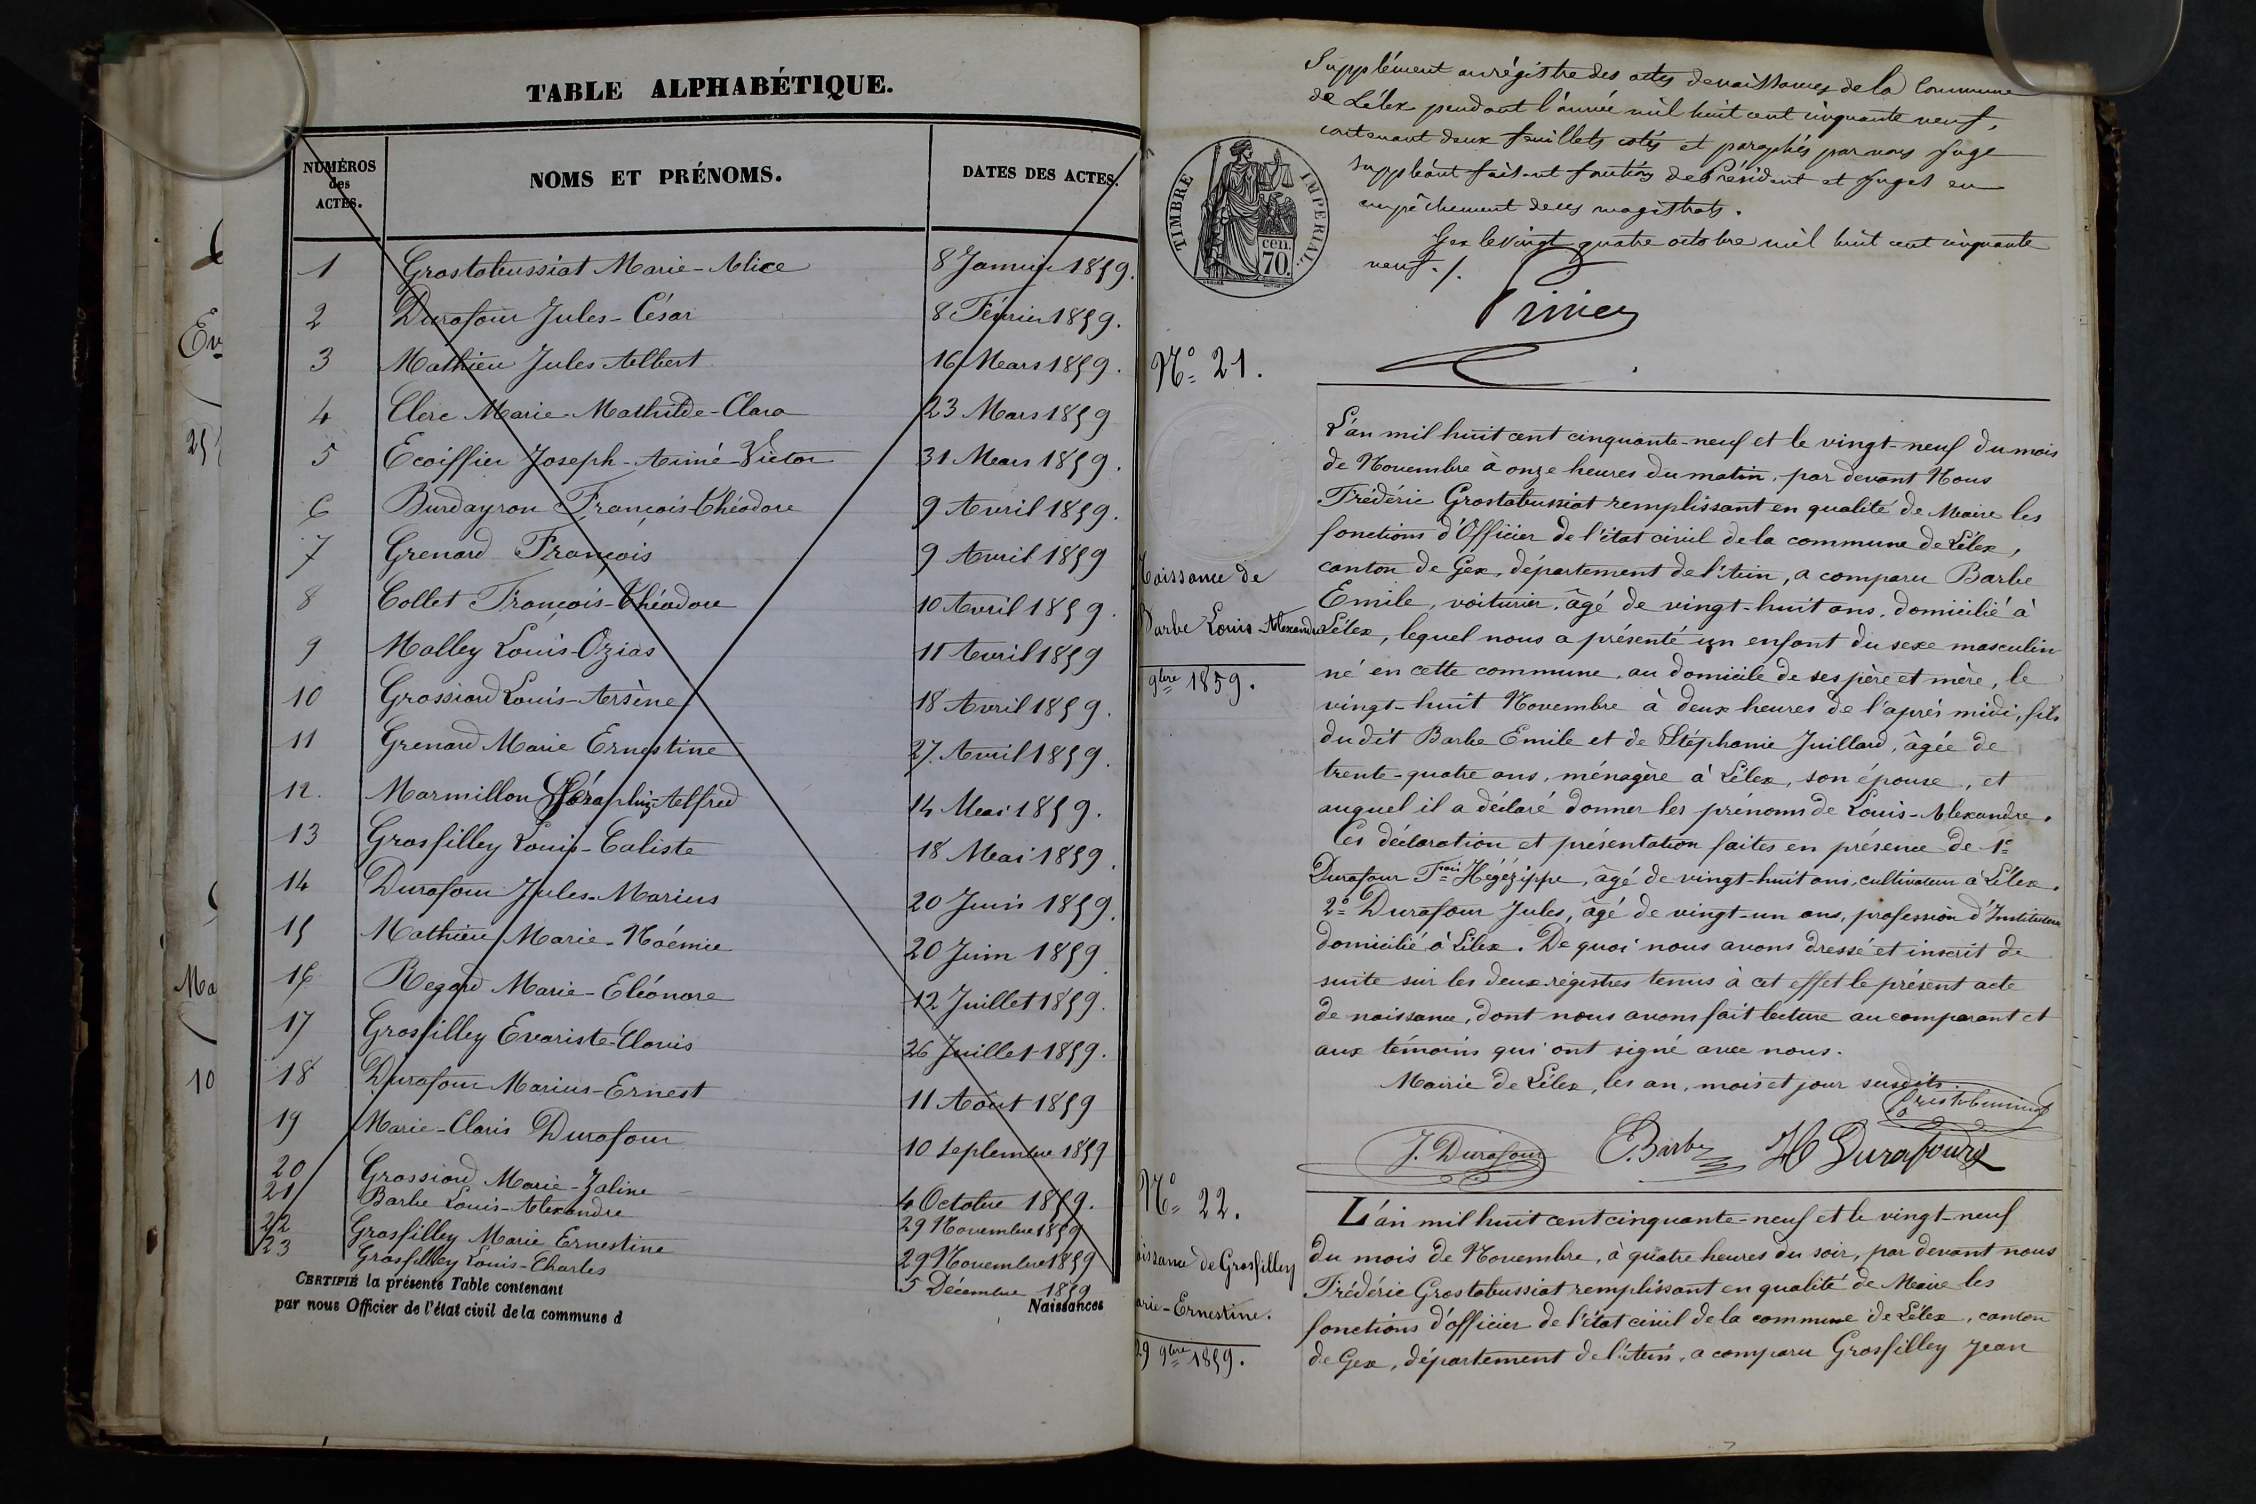 TABLE ALPHABÉTIQUE.
NUMÉROS des ACTES. NOMS ET PRÉNOMS. DATES DES ACTES.
1 Grostabussiat Marie-Alice 8 Janvier 1859.
2 Durafour Jules-César 8 Février 1859.
3 Mathieu Jules Albert 16 Mars 1859.
4 Clerc Marie-Mathilde-Clara 23 Mars 1859
5 Ecoiffier Joseph-Aimé-Victor 31 Mars 1859.
6 Burdayron François Théodore 9 Avril 1859.
7 Grenard François 9 Avril 1859
8 Collet François-Théodore 10 Avril 1859.
9 Malley Louis-Ozias 11 Avril 1859
10 Grossiord Louis-Arsène 18 Avril 1859.
11 Grenard Marie Ernestine 27 Avril 1859.
12. Marmillon Séraphin-Alfred 14 Mai 1859.
13 Grosfilley Louis-Caliste 18 Mai 1859.
14 Durafour Jules-Marius 20 Juin 1859.
15 Mathieu Marie-Noémie 20 Juin 1859.
16 Regard Marie-Eléonore 12 Juillet 1859.
17 Grosfilley Evariste-Clovis 26 Juillet 1859.
18 Durafour Marius-Ernest 11 Août 1859
19 Marie-Claris Durafour 10 Septembre 1859
20 Grossiord Marie-Zaline 4 Octobre 1859.
21 Barbe Louis-Alexandre 29 Novembre 1859
22 Grosfilley Marie Ernestine 29 Novembre 1859
23 Grosfilley Louis-Charles 5 Décembre 1859
CERTIFIÉ la présente Table contenant Naissances
par nous Officier de l'état civil de la commune d
Ev
25
Ma
10
Supplément au régistre des actes de naissances de la Commune
de Lélex pendant l'année mil huit cent cinquante neuf,
contenant deux feuillets cotés et paraphés par nous Juge
suppléant faisant fonctions de Président et Juges en
empêchement de ces magistrats.
Gex le vingt quatre octobre mil huit cent cinquante
neuf ./.
TIMBRE IMPÉRIAL.
cen. 70.
No. 21.
Naissance de
Barbe Louis-Alexandre
9bre 1859.
L'án mil huit cent cinquante-neuf et le vingt-neuf du mois
de Novembre à onze heures du matin, par devant Nous
Frédéric Grostabussiat remplissant en qualité de Maire les
fonctions d'Officier de l'état civil de la commune de Lélex,
canton de Gex, département de l'Ain, a comparu Barbe
Emile, voiturier, âgé de vingt-huit ans, domicilié à
Lélex, lequel nous a présenté un enfant du sexe masculin
né en cette commune, au domicile de ses père et mère, le
vingt-huit Novembre à deux heures de l'après midi, fils
du dit Barbe Emile et de Stéphanie Juillard, âgée de
trente-quatre ans, ménagère à Lélex, son épouse, et
auquel il a déclaré donner les prénoms de Louis-Alexandre.
Ces déclaration et présentation faites en présence de 1°
Durafour Fçois Hégézippe, âgé de vingt-huit ans, cultivateur à Lélex.
2° Durafour Jules, âgé de vingt-un ans, profession d'Instituteur
domicilié à Lélex. De quoi nous avons dressé et inscrit de
suite sur les deux régistres tenus à cet effet le présent acte
de naissance, dont nous avons fait lecture au comparant et
aux témoins qui ont signé avec nous.
Mairie de Lélex, les an, mois et jour susdits.
Grostabussiat
J. Durafour E. Barbe H Durafourg
No. 22.
issance de Grosfilley
arie-Ernestine.
29 9bre 1859.
L'án mil huit cent cinquante-neuf et le vingt-neuf
du mois de Novembre, à quatre heures du soir, par devant nous
Frédéric Grostabussiat remplissant en qualité de Maire les
fonctions d'officier de l'état civil de la commune de Lélex, canton
de Gex, département de l'Ain, a comparu Grosfilley Jean